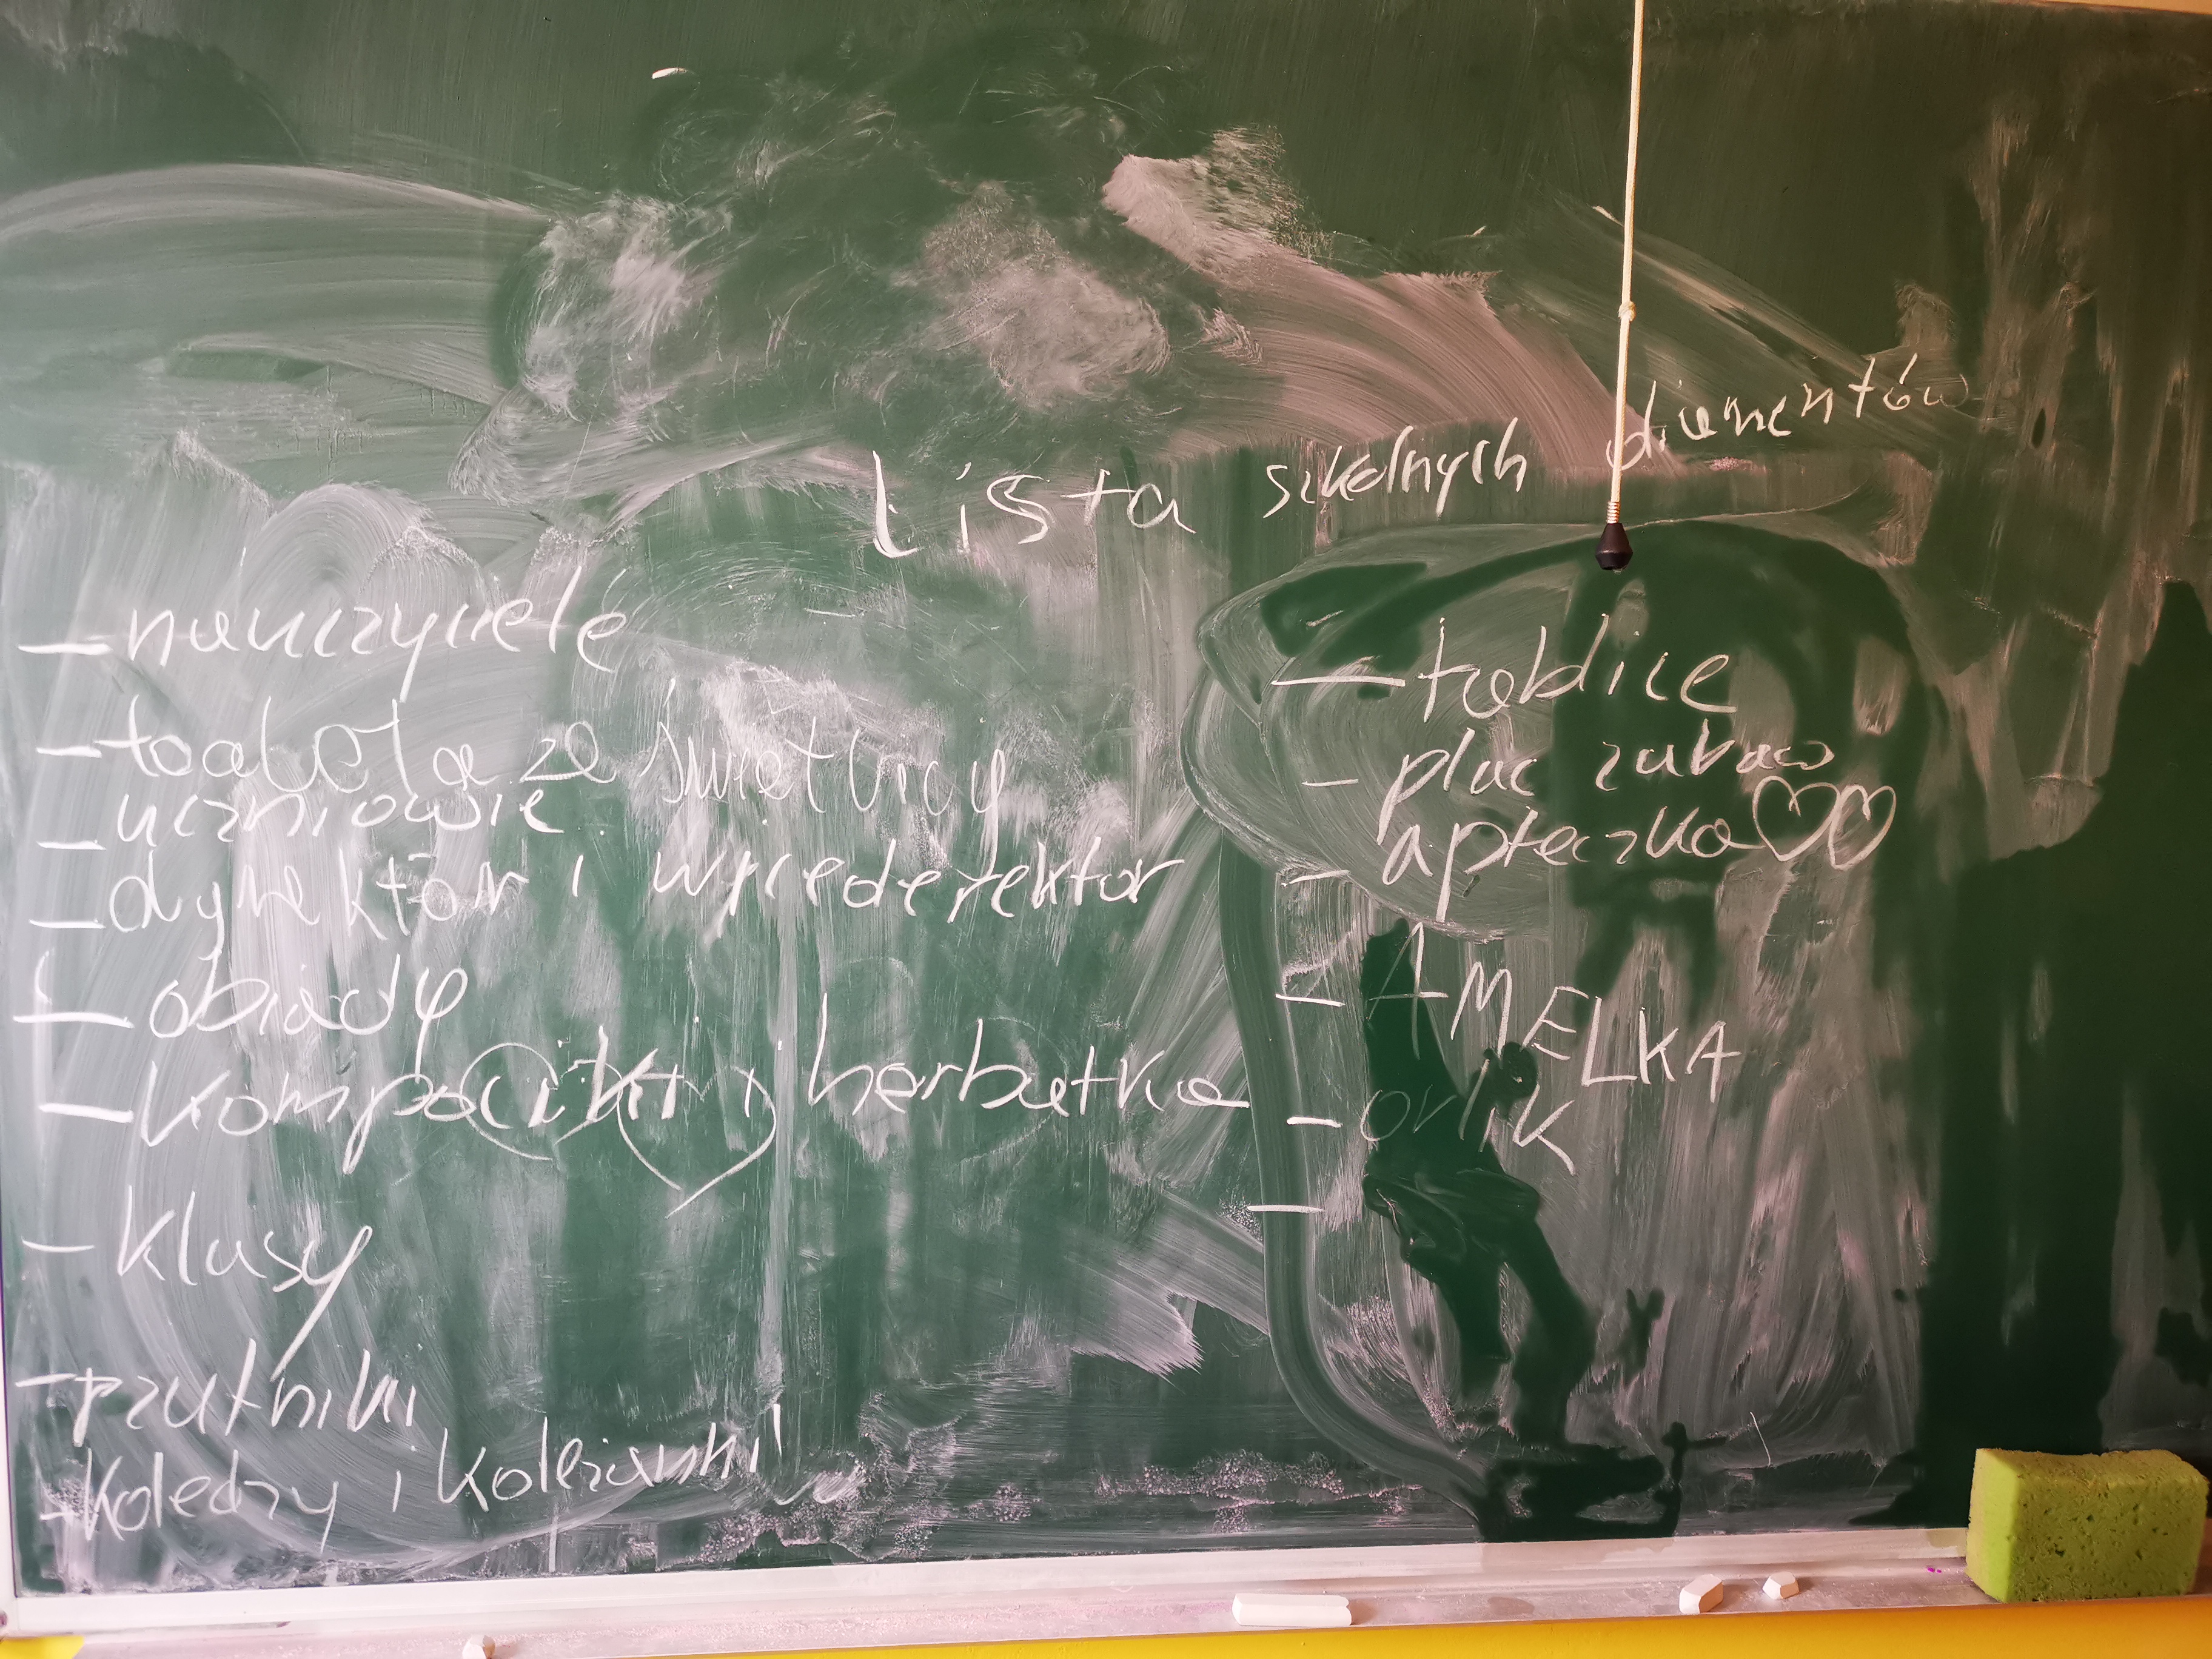 Lista szkolnych diamentów
- nauczyciele
- toaleta ze świetlicy
- uczniowie
- dyrektor i wicederektor
- obiady
- kompociki i herbatka
- klasy
- rzutniki
- koledzy i koleżanki
- tablice
- plac zabaw
- apteczka ♡♡
- AMELKA
- orlik
-